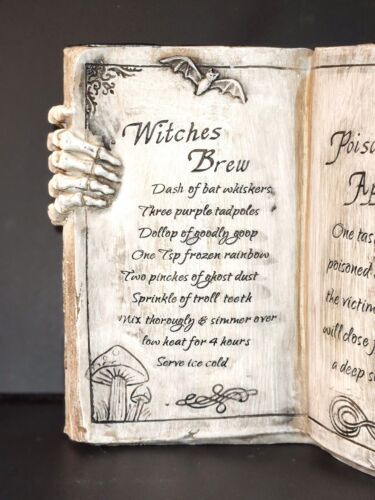 Witches
Brew
Dash of bat whiskers
Three purple tadpoles
Dollop of goodly goop
One Tsp frozen rainbow
Two pinches of ghost dust
Sprinkle of troll teeth
Mix thorougly & simmer over
low heat for 4 hours
Serve ice cold
One
poisoned
the victim
will close
a deep